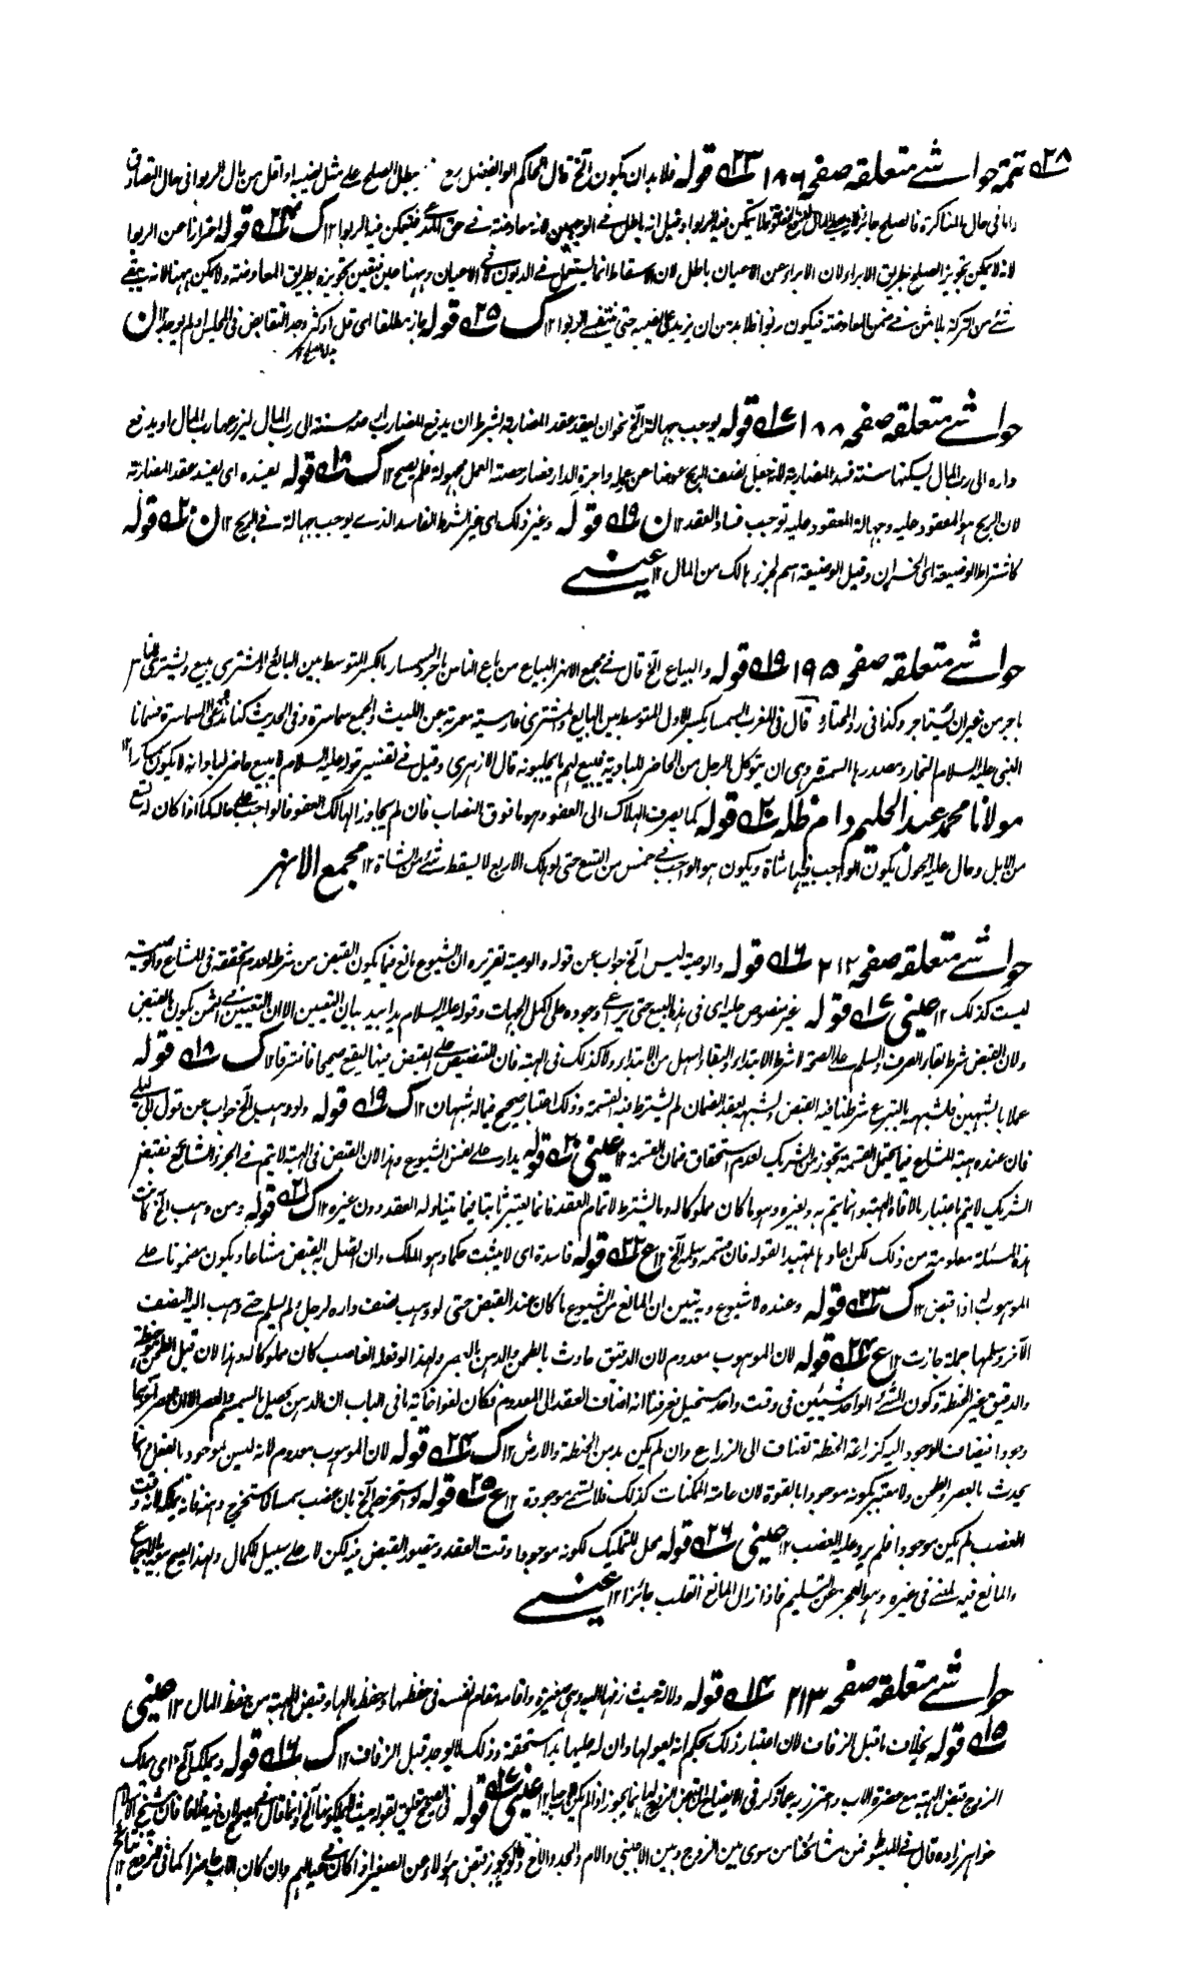 تتمہ حواشے متعلقہ صفحہ ۱۸۶ قولہ فلا بد ان یکون الخ قال الحاکم ابو الفضل یبطل الصلح علے مثل نصیبہ او اقل من مال الربوا فی حال التصادق
واما فی حال المناکرة فالصلح جائز وقیل انہ باطل فے الوجهین لانہ معاوضة فے حق المدعی فیتمکن فیہ الربوا ۱۲ ک قولہ احترازا عن الربوا
لانہ لا یمکن تجویز الصلح بطریق الابراء لان الابراء عن الاعیان باطل لان الاسقاط انما یستعمل فے الدیون لا فے الاعیان وہہنا عین فیتعین تجویزہ بطریق المعاوضة ولا یمکن ہہنا لانہ یبقے
شئ من الترکة بلا ثمن فے ضمن المعاوضة فیکون ربوا فلا بد من ان یزید علی نصیبہ حتی ینتفے الربوا ۱۲ ک قولہ جاز مطلقا ای قل او کثر وجد التقابض فی المجلس او لم یوجد ۱۲ ن
حواشے متعلقہ صفحہ ۱۸۸ قولہ یوجب جہالة الخ نحو ان یعقد عقد المضاربة بشرط ان یدفع المضارب ارضہ سنة الی رب المال لیزرعہا رب المال او یدفع
دارہ الی رب المال لیسکنہا سنة فسد المضاربة لانہ جعل نصف الربح عوضا عن عملہ واجرة الدار فصار حصة العمل مجہولة فلم یصح ۱۲ ک قولہ یفسدہ ای یفسد عقد المضاربة
لان الربح ہو المعقود علیہ وجہالة المعقود علیہ توجب فساد العقد ۱۲ ن قولہ وغیر ذلک ای غیر الشرط الفاسد الذے یوجب جہالة فے الربح ۱۲ ن قولہ
کاشتراط الوضیعة ای الخسران وقیل الوضیعة اسم لجزء ہالک من المال ۱۲ عینے
حواشے متعلقہ صفحہ ۱۹۵ قولہ والبیاع الخ قال فے مجمع الانہر البیاع من باع الناس باجر السمسار بالکسر المتوسط بین البائع والمشتری یبیع ویشتری للناس
باجر من غیر ان یستاجر وکذا فی رد المحتار قال فی المغرب السمسار بکسر الاول المتوسط بین البایع والمشتری فارسیة معربة عن اللیث والجمع سماسرة وفی الحدیث کنا ندعی السماسرة فسمانا
النبی علیہ السلام التجار ومصدرہا السمسرة وہی ان یتوکل الرجل من الحاضر للبادیة فیبیع لہم ما یجلبونہ قال الازہری وقیل فے تفسیر قولہ علیہ السلام لا یبیع حاضر لباد انہ لا یکون سمسارا ۱۲
مولانا محمد عبد الحلیم دام ظلہ قولہ کما یصرف الہلاک الی العفو وہو ما فوق النصاب فان لم یجاوز الہالک العفو فالواجب علے حالہ کما اذا کان لہ تسع
من الابل وحال علیہ الحول یکون الواجب فیہا شاة ویکون ہو الواجب فے خمس من التسع حتی لو ہلک الاربع لا یسقط شئ من الشاة ۱۲ مجمع الانہر
حواشے متعلقہ صفحہ ۲۱۲ قولہ والوصیة لیس الخ جواب عن قولہ والوصیة تقریرہ ان الشیوع مانع فیما یکون القبض من شرطہ لعدم تحققہ فی المشاع والوصیة
لیست کذلک ۱۲ عینی قولہ غیر منصوص علیہ ای فی ہذہ البیع حتی یراعے وجودہ علی اکمل الجہات وقولہ علیہ السلام یدا بید بیان التعیین الا ان التعیین فے الثمن یکون بالقبض
ولان القبض شرط بقاء الصرف والسلم علے الصحة لا شرط الابتداء والبقاء اسہل من الابتداء ولا کذلک فی الہبة فان التنصیص علے القبض فیہا لیقع صحیحا فافترقا ۱۲ ک قولہ
عملا بالشبہین فلشبہہ بالتبرع شرطنا فیہ القبض ولشبہہ بعقد الضمان لم یشترط فیہ القسمة وذلک اعتبار صحیح فیما لہ شبہان ۱۲ ک قولہ ولو وہب الخ جواب عن قول ابن ابی لیلے
فان عندہ ہبة المشاع فیما یحتمل القسمة تجوز من الشریک لعدم استحقاق ضمان القسمة ۱۲ عینی قولہ یدار علے نفس الشیوع وہذا لان القبض فی الہبة لا یتم فے الجزء الشائع فقبض
الشریک لا یتم باعتبار ما لاقاہ الہبة وانما یتم بہ وبغیرہ وہو ما کان مملوکا لہ وما یشترط لاتمام العقد فانما یعتبر ثابتا فیما یتناولہ العقد دون غیرہ ۱۲ ک قولہ ومن وہب الخ کانت
ہذہ المسئلة معلومة من ذلک لکن اعادہا تمہیدا لقولہ فان قسمہ وسلمہ الخ ۱۲ ع قولہ فاسدة ای لا یثبت حکما وہو الملک وان اتصل بہ القبض مشاعا ویکون مضمونا علے
الموہوب لہ اذا قبض ۱۲ ک قولہ وعندہ لا شیوع وبہ تبین ان المانع من الشیوع ما کان عند القبض حتی لو وہب نصف دارہ لرجل ولم یسلم حتے وہب الیہ النصف
الآخر وسلمہا جملة جازت ۱۲ ع قولہ لان الموہوب معدوم لان الدقیق حادث بالطحن والدہن بالعصر ولہذا لو فعلہ الغاصب کان مملوکا لہ وہذا لان قبل الطحن حنطة
والدقیق غیر الحنطة وکون الشئ الواحد شیئین فی وقت واحد مستحیل فعرفنا انہ اضاف العقد الی المعدوم فکان لغوا غایة ما فی الباب ان الدہن یحصل بالسمسم والعصر الا ان العصر آخرہما
وجودا فیضاف الوجود الیہ کزراعة الحنطة تضاف الی الزارع وان لم یکن بد من الحنطة والارض ۱۲ ک قولہ لان الموہوب معدوم لانہ لیس بموجود بالفعل وانما
یحدث بالعصر والطحن ولا معتبر بکونہ موجودا بالقوة لان عامة الممکنات کذلک فلا تسمے موجودة ۱۲ ع قولہ لو استخرجہ الخ بان غصب سمسما فاستخرج دہنہ فانہ یملکہ لانہ وقت
الغصب لم یکن موجودا فلم یرد علیہ الغصب ۱۲ عینی قولہ محل للتملیک لکونہ موجودا وقت العقد ویتصور القبض فیہ لکن لا علے سبیل الکمال ولہذا یصح بیعہ بالاجماع
والمانع فیہ لمعنے فی غیرہ وہو العجز عن التسلیم فاذا زال المانع انقلب جائزا ۱۲ عینے
حواشے متعلقہ صفحہ ۲۱۳ قولہ دلالة حیث زفہا الیہ وہی صغیرة واقامہ مقام نفسہ فی حفظہا وحفظ مالہا وقبض الہبة من حفظ المال ۱۲ عینی
قولہ بخلاف ما قبل الزفاف لان اعتبار ذلک بحکم انہ یعولہا وان لہ علیہا یدا مستحقة وذلک لا یوجد قبل الزفاف ۱۲ ک قولہ ویملکہ الخ ای یملک
الزوج قبض الہبة مع حضرة الاب واحترز بہ عما ذکر فی الایضاح ان قبض الزوج لہا انما یجوز اذا لم یکن الاب حیا ۱۲ عینی قولہ فی الصحیح
خواہر زادہ قال فے المبسوط فمن مشائخنا من سوی بین الزوج وبین الاجنبی والام والجد والاخ وقالوا یجوز قبض ہؤلاء عن الصغیر اذا کان فے عیالہم وان کان الاب حاضرا کما فی الزوج ۱۲